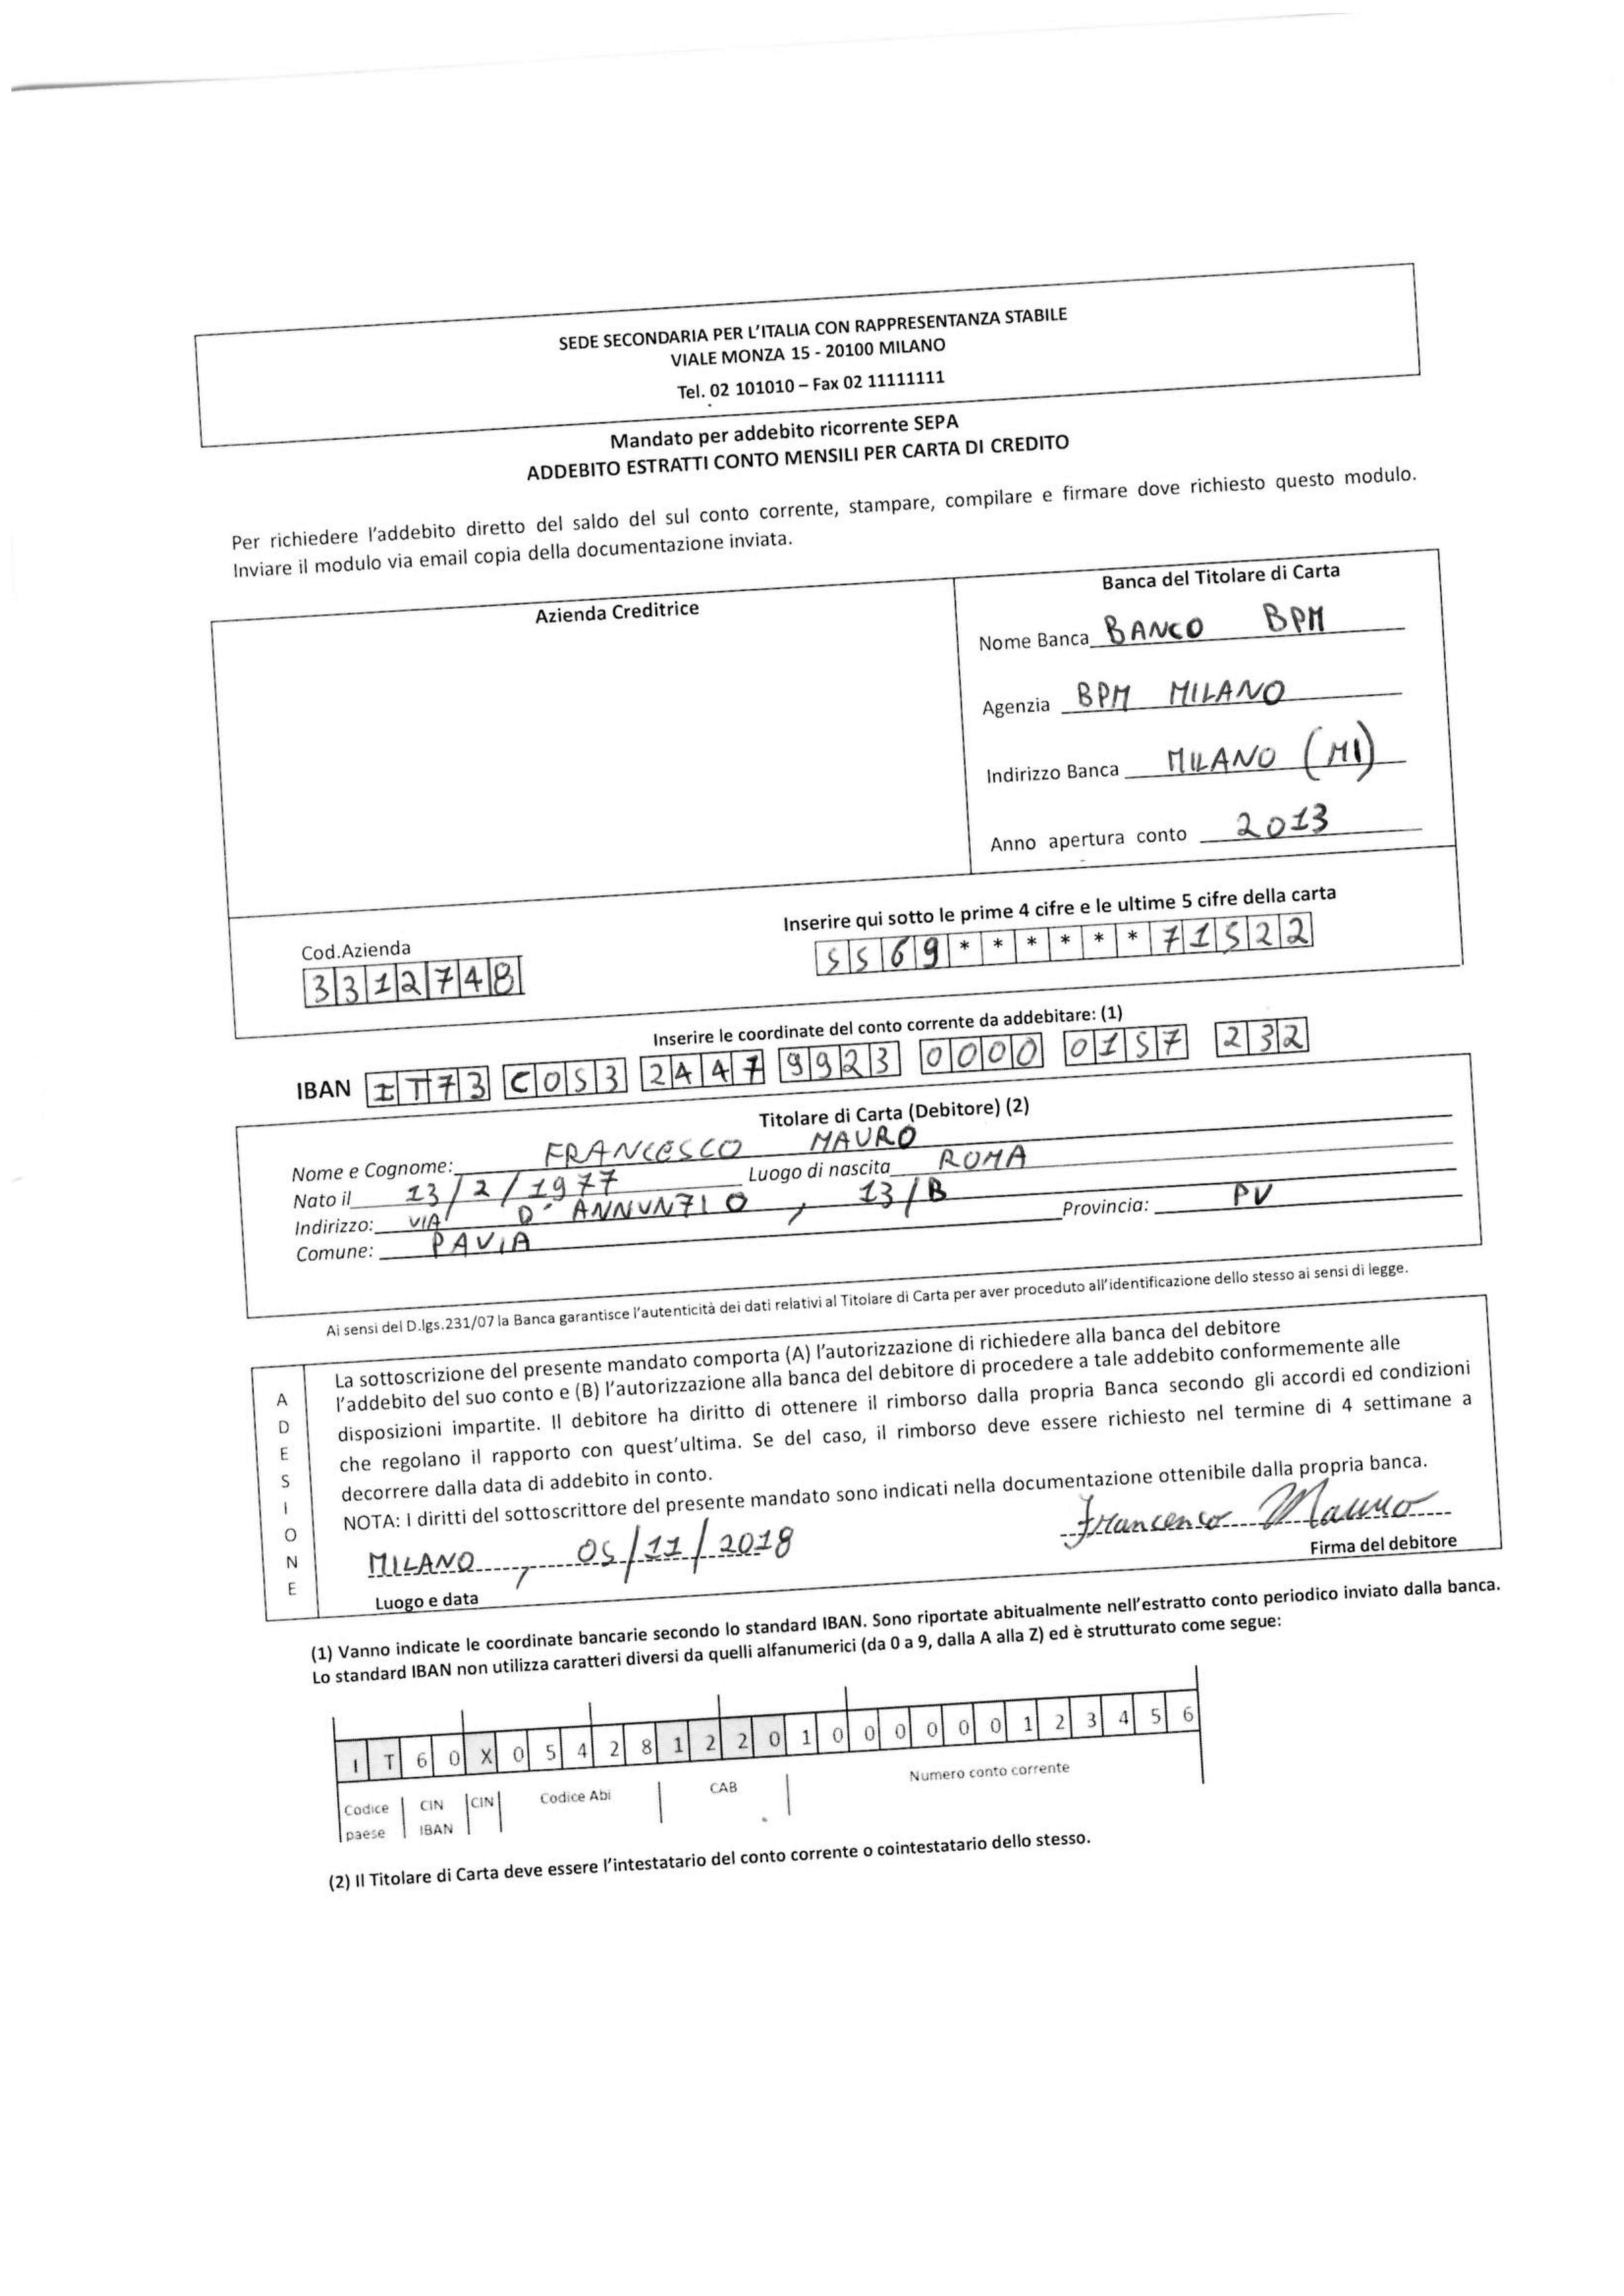 SEDE SECONDARIA PER L'ITALIA CON RAPPRESENTANZA STABILE
VIALE MONZA 15 - 20100 MILANO
Tel. 02 101010 – Fax 02 11111111
Mandato per addebito ricorrente SEPA
ADDEBITO ESTRATTI CONTO MENSILI PER CARTA DI CREDITO
Per richiedere l'addebito diretto del saldo del sul conto corrente, stampare, compilare e firmare dove richiesto questo modulo.
Inviare il modulo via email copia della documentazione inviata.
Azienda Creditrice
Banca del Titolare di Carta
Nome Banca BANCO BPM
Agenzia BPM MILANO
Indirizzo Banca MILANO (MI)
Anno apertura conto 2013
Cod.Azienda
3312748
Inserire qui sotto le prime 4 cifre e le ultime 5 cifre della carta
5569******71522
Inserire le coordinate del conto corrente da addebitare: (1)
IBAN IT73 C053 2447 9923 0000 0157 232
Titolare di Carta (Debitore) (2)
Nome e Cognome: FRANCESCO MAURO
Nato il 13/2/1977 Luogo di nascita ROMA
Indirizzo: VIA D'ANNUNZIO, 13/B
Comune: PAVIA Provincia: PV
Ai sensi del D.lgs.231/07 la Banca garantisce l'autenticità dei dati relativi al Titolare di Carta per aver proceduto all'identificazione dello stesso ai sensi di legge.
ADESIONE
La sottoscrizione del presente mandato comporta (A) l'autorizzazione di richiedere alla banca del debitore
l'addebito del suo conto e (B) l'autorizzazione alla banca del debitore di procedere a tale addebito conformemente alle
disposizioni impartite. Il debitore ha diritto di ottenere il rimborso dalla propria Banca secondo gli accordi ed condizioni
che regolano il rapporto con quest'ultima. Se del caso, il rimborso deve essere richiesto nel termine di 4 settimane a
decorrere dalla data di addebito in conto.
NOTA: I diritti del sottoscrittore del presente mandato sono indicati nella documentazione ottenibile dalla propria banca.
MILANO, 05/11/2018
Luogo e data
Francesco Mauro
Firma del debitore
(1) Vanno indicate le coordinate bancarie secondo lo standard IBAN. Sono riportate abitualmente nell'estratto conto periodico inviato dalla banca.
Lo standard IBAN non utilizza caratteri diversi da quelli alfanumerici (da 0 a 9, dalla A alla Z) ed è strutturato come segue:
I T 6 0 X 0 5 4 2 8 1 2 2 0 1 0 0 0 0 0 0 1 2 3 4 5 6
Codice paese CIN IBAN CIN Codice Abi CAB Numero conto corrente
(2) Il Titolare di Carta deve essere l'intestatario del conto corrente o cointestatario dello stesso.